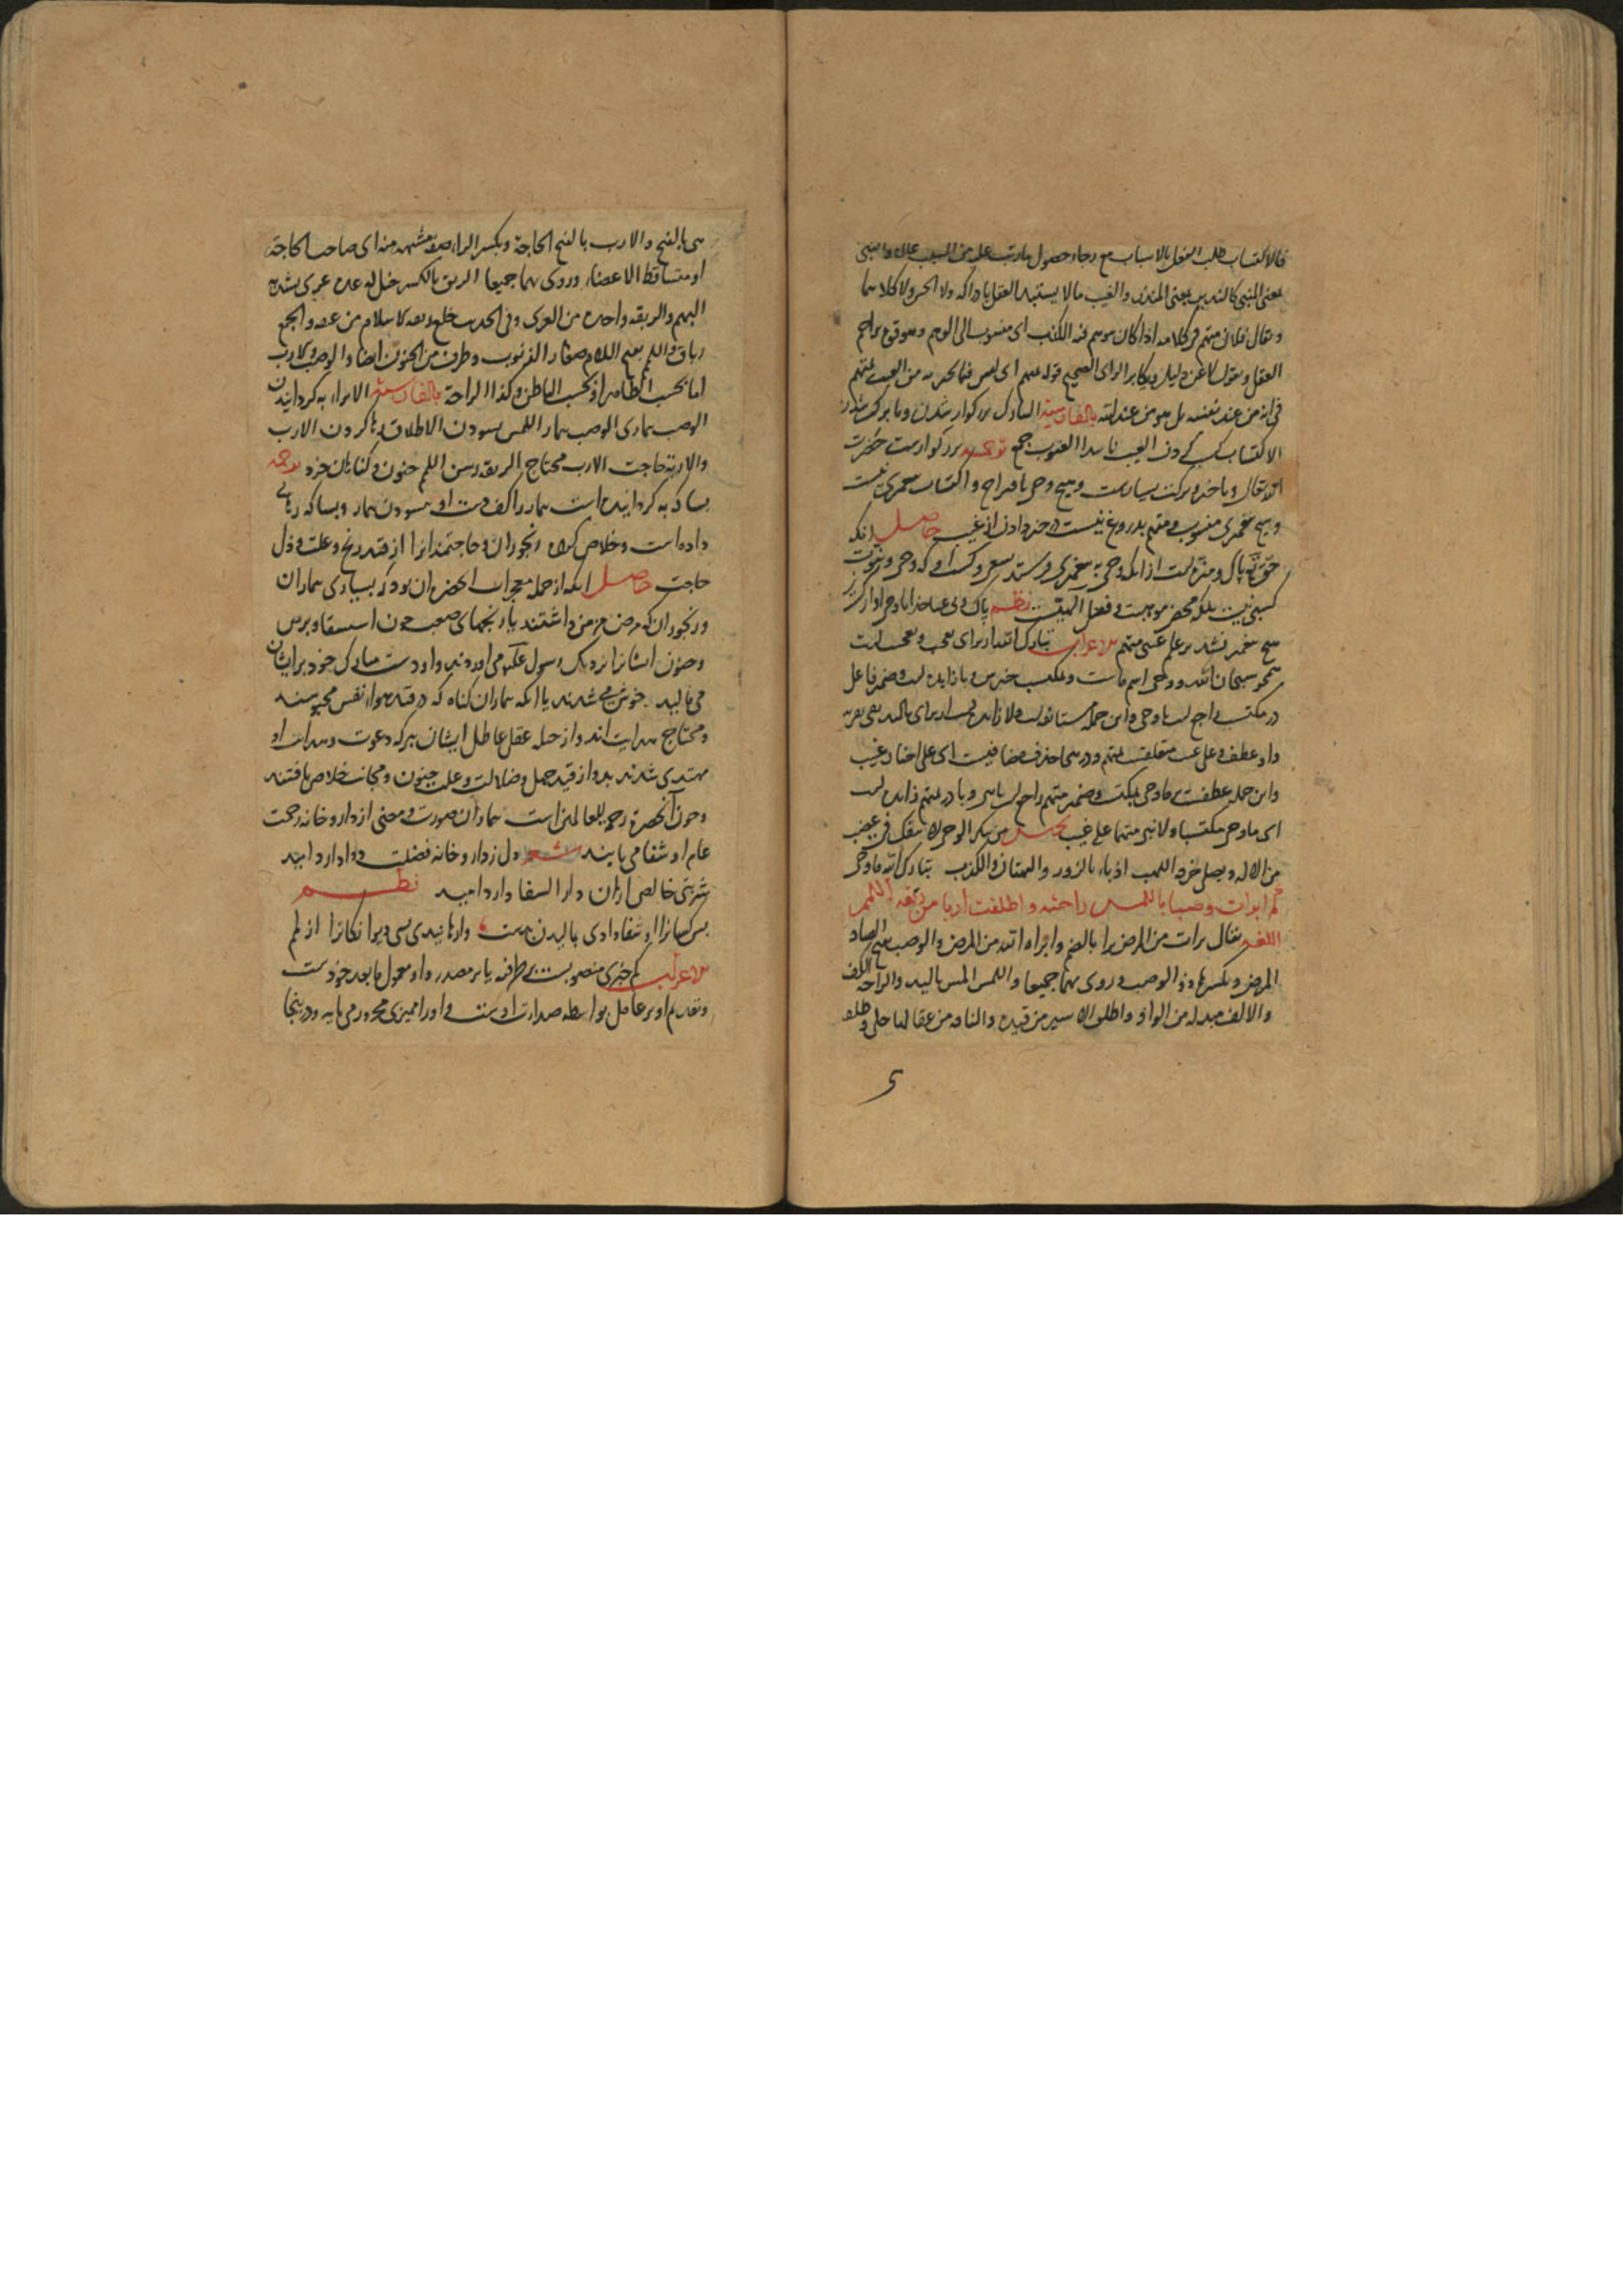 فالاکتساب طلب الفعل بالاسباب مع رجاء حصول ما رتب علیه من المسبب عالی والنبی
بمعنی المنبی کالنذیر بمعنی المنذر والغیب مالا یستبد العقل بادراکه ولا الحس ولا کلاهما
ویقال فلان متهم فی کلامه اذا کان موهم فیه الکذب ای منسوب الی الوهم وهو قوع مراحم
العقل ویقول لا عن دلیل ویکابر الرای الصحیح قوله بمتهم ای لیس فیما یخبر به من الغیب بمتهم
فی انه من عند نفسه بل هو من عند الله بالفارسیة التبارک بزرکوار شدن وبا برکت شدن
الاکتساب کسب کردن الغیب نا پیدا الغیوب جمع ترجمه بزرکوارست حضرت
الله تعالی وبا خیر وبرکت بسیارست وهیچ وحی باقتراح واکتساب پیغمبری نیست
وهیچ پیغمبری منسوب ومتهم بدروغ نیست در خبر دادن از غیب حاصل انکه
حق تعالی پاک ومنزه است از انکه وحی به پیغمبری فرستد بسعی وکسب او که وحی ونبوت
کسبی نیست بلکه محض موهبت وفعل الهیست نظم پاک وبی عیب خدایا وحی او از کسب
هیچ پیغمبر نشد بر علم غیبی متهم الاعراب تبارک الله از برای تعجب وتعجب است
همچو سبحان الله ووحی اسم ماست وبمکتسب خبرش وبا زایده است وضمیر فاعل
در مکتسب راجع است با وحی واین جمله مستانفه است ولا زایده است از برای تاکید نفی بعربیه
واو عطف وعلی غیب متعلقست بمتهم ودر نبی حذف مضافیست ای علی اخبار غیب
واین جمله عطفست بر ما وحی بمکتسب وضمیر متهم راجع است با نبی وبا در بمتهم زایده است
ای ما وحی مکتسبا ولا نبی متهما علی غیب تخمیس من ینکر الوحی لا ینفک فی غضب
من الاله ویصلی حره اللهب اذ باء بالزور والبهتان والکذب تبارک الله ما وحی
کم ابرات وصبا باللمس راحته واطلقت اربا من ربقة اللمم
اللغة یقال برات من المرض برا بالضم وابراه الله من المرض والوصب بفتح الصاد
المرض وبکسرها ذو الوصب وروی بهما جمیعا واللمس المس بالید والراحة الکف
والالف مبدلة من الواو واطلق الاسیر من قیده والناقة من عقالها خلی وطلق
هی بالفتح والارب بالفتح الحاجة وبکسر الراء صفة مشبهه منه ای صاحب الحاجة
او متساقط الاعضاء وروی بهما جمیعا الربق بالکسر حبل له عدة عری یشد به
البهم والربقة واحدة من العری وفی الحدیث خلع ربقة الاسلام من عنقه والجمع
رباق واللمم بفتح اللام صغار الذنوب وطرف من الجنون ایضا والوصب والارب
اما بحسب الظاهر او بحسب الباطن وکذا الراحة بالفارسیة الابراء به کردانیدن
الوصب بیماری الوصب بیمار اللمس بسودن الاطلاق رها کردن الارب
والاربة حاجت الارب محتاج الربقة رسن اللمم جنون وکناهان خرد ترجمه
بسا که به کردانیده است بیمار را کف دست او بسودن بیمار وبسا که رهایی
داده است وخلاص کرده رنجوران وحاجتمندانرا از قید رنج وعلت وذل
حاجت حاصل انکه از جمله معجزات انحضرت ان بود که بسیاری بیماران
ورنجوران که مرض مزمن داشتند یا رنجهای صعب چون استسقا وبرص
وجنون ایشانرا نزدیک رسول علیه می اوردند واو دست مبارک خود بر ایشان
می مالید خوش می شدند یا انکه بیماران کناه که در قید هواء نفس محبوسند
ومحتاج هدایت اند واز حیله عقل عاطل ایشان ببرکه دعوت وهدایت او
مهتدی شدند بدو از قید جهل وضلالت وعلت جنون ومجانب خلاص یافتند
وچون آنحضرت رحمة للعالمین است بیماران صورت ومعنی از دار وخانه رحمت
عام او شفا می یابند شعر دل ز دارو خانه فضلت دوا دارد امید
شربتی خالص از ان دار الشفا دارد امید نظم
بس کسانرا او شفا دادی بمالیدن بدست وارهانیدی بسی دیوانکانرا از لمم
الاعراب کم خبری منصوبست بر ظرفیه یا بر مصدر واو معمول ما بعد خودست
وتقدیم او بر عامل بواسطه صدارت اوست واو را ممیزی مجرور می باید ودر ینجا